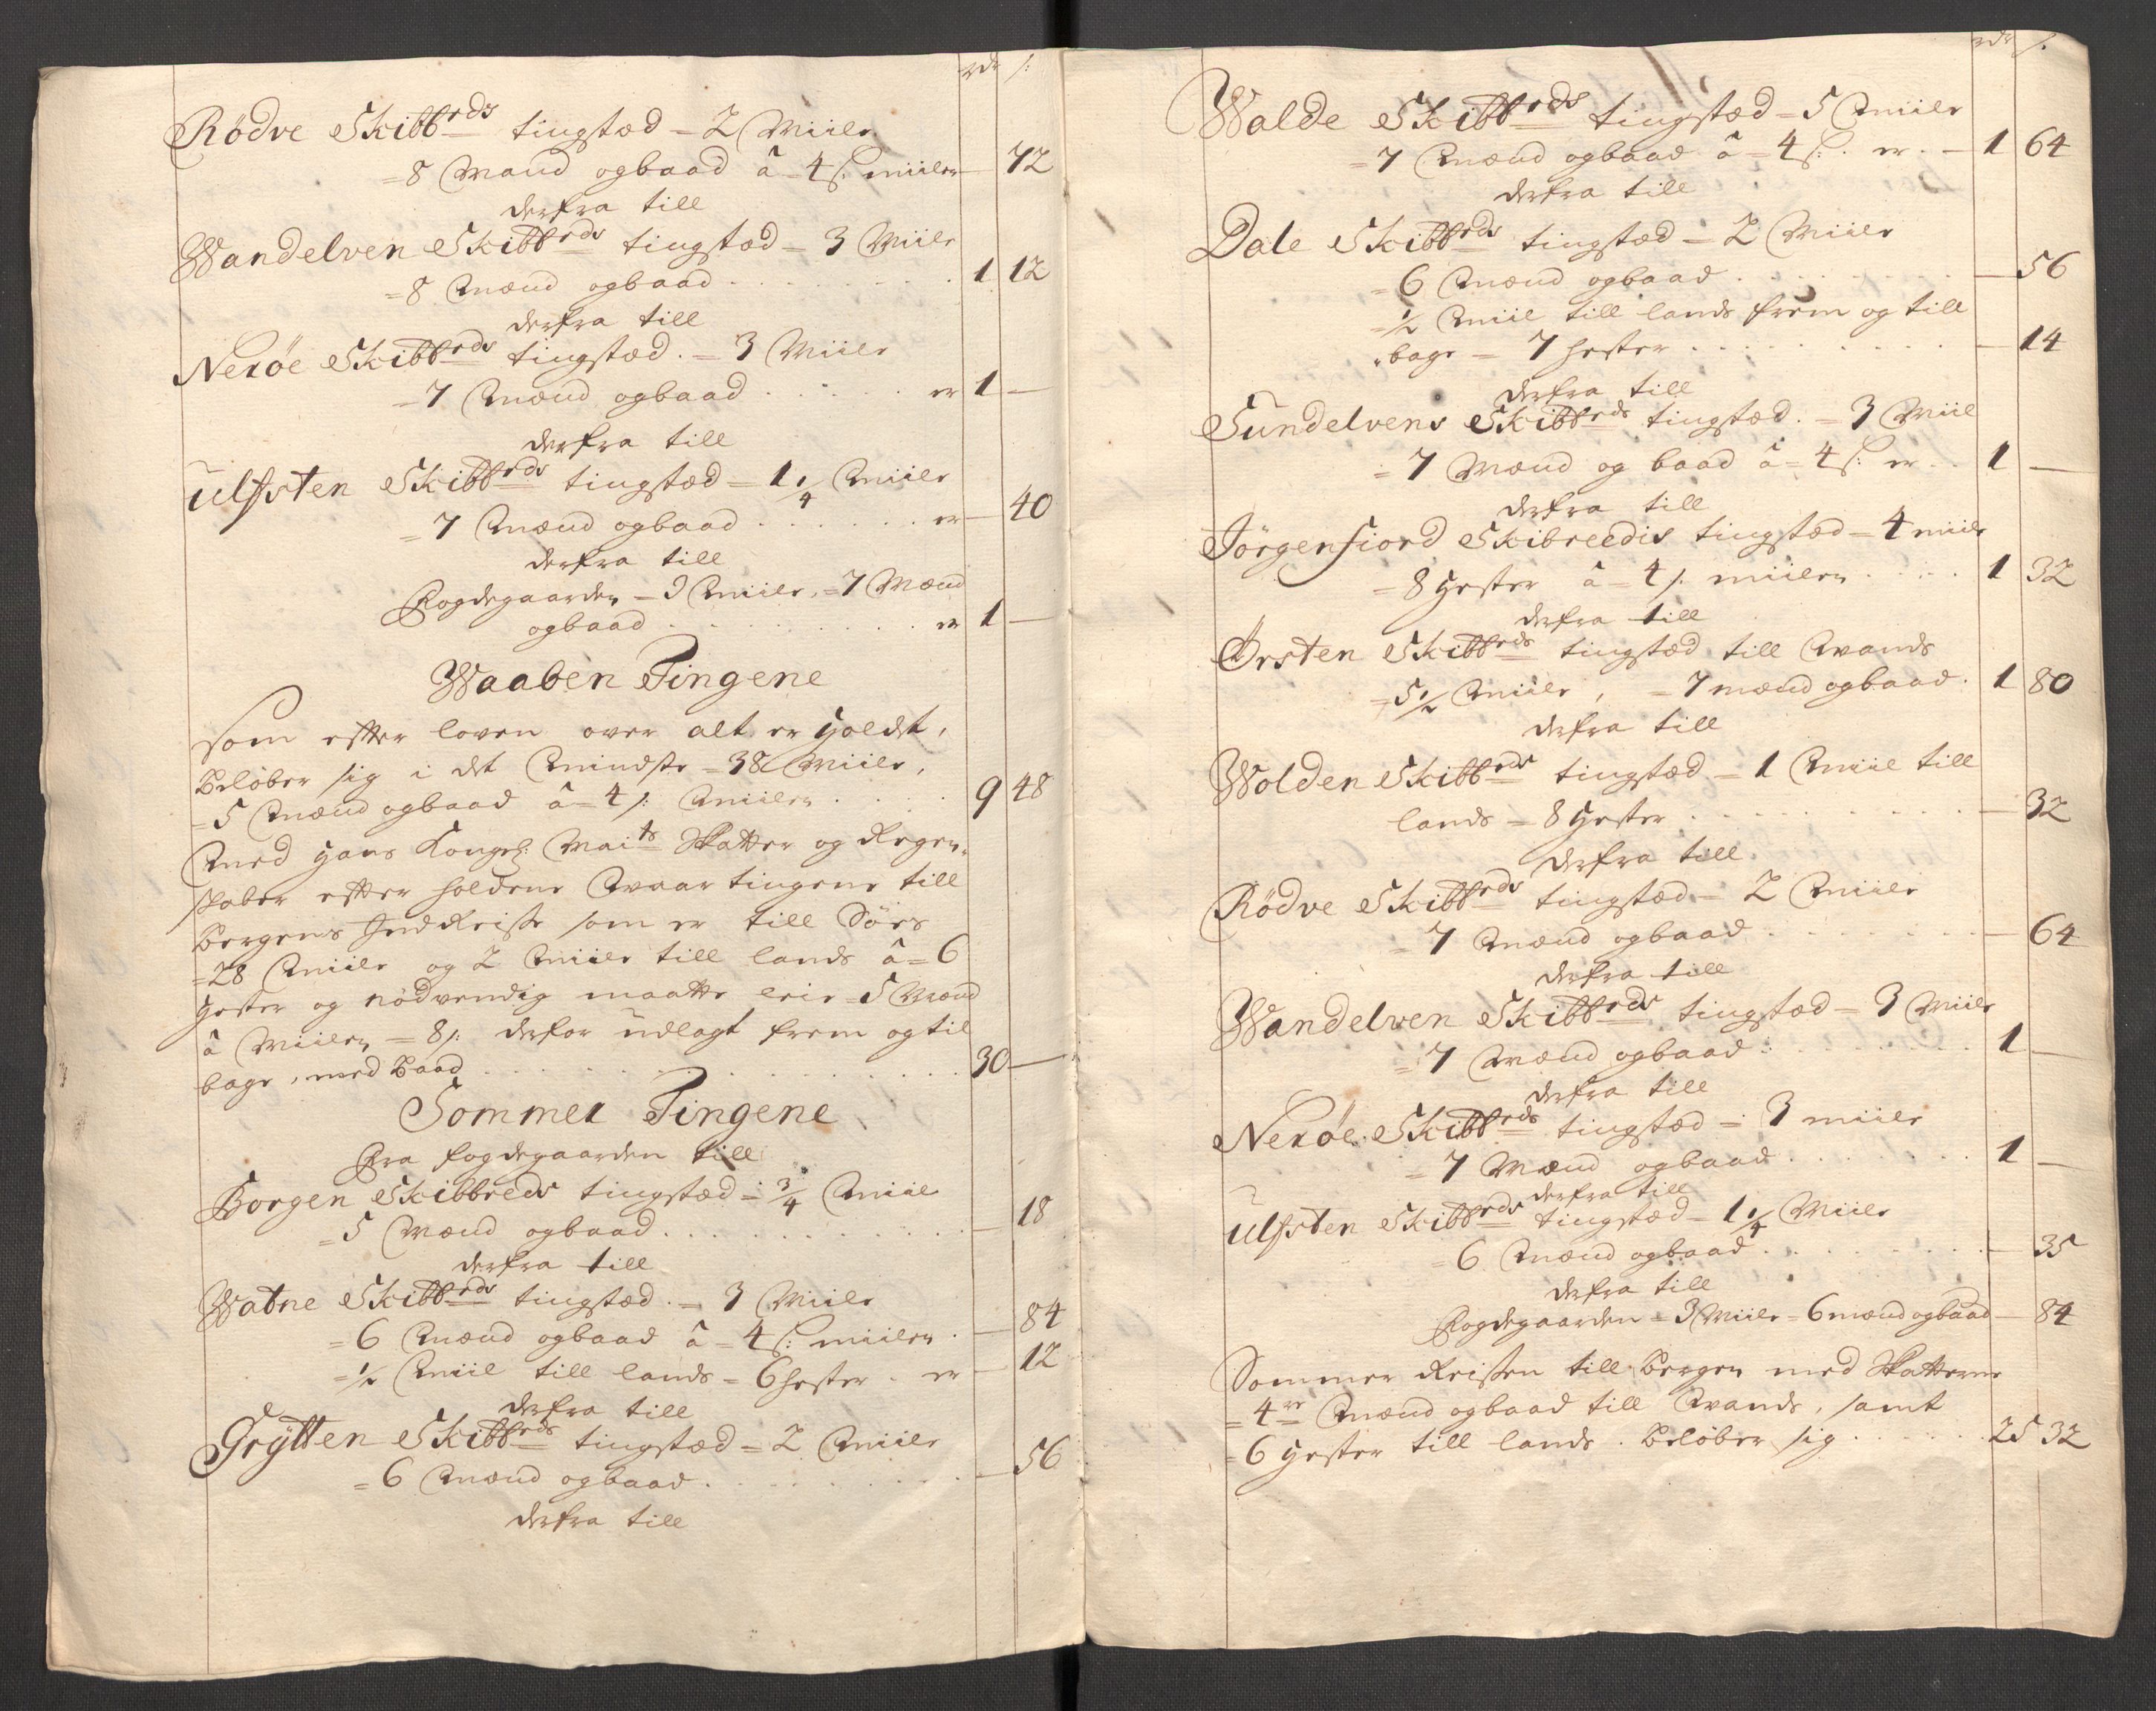 rdr s:
Rödve Skibb<sup>rds</sup> tingstæd = 2 Miile
= 8 Mand ogbaad â = 4 s: miilen — 72
derfra till
Wandelven Skibb<sup>rds</sup> tingstæd = 3 Miile
= 8 Mænd ogbaad . . . . . . . 1 12
derfra till
Nexöe Skibb<sup>rds</sup> tingstæd . = 3 Miile
= 7 Mænd ogbaad . . . . . er 1 —
derfra till
Ulfsten Skibb<sup>rds</sup> tingstæd = 1 1/4 Miile
= 7 Mænd ogbaad . . . . . . er — 40
derfra till
Fogdegaarden = 3 Miile, = 7 Mænd
ogbaad . . . . . . . . . er 1 —
Waaben Tingene
som efter loven over alt er holdt,
Belöber sig i det Mindste = 38 Miile,
= 5 Mænd ogbaad â = 4 s: Miilen . . . . 9 48
Med Hans Kongel: Mai<sup>ts</sup> Skatter og Regen„
skaber efter holdene Waartingene till
Bergens IndReise som er till Söes
= 28 Miile og 2 Miile till lands â = 6
Hester og nödvendig maatte leie = 5 Mænd
â Miilen = 8 s: derfor udlagt frem og til
bage, med Baad . . . . . . . . . . . 30 —
Sommer Tingene
Fra fogdegaarden till
Borgen Skibbreds tingstæd = 3/4 Miil
= 5 Mænd ogbaad . . . . . . . . — 18
derfra till
Watne Skibb<sup>rds</sup> tingstæd . = 3 Miile
= 6 Mænd ogbaad â = 4 s: miilen . — 84
= 1/2 Miil till lands = 6 hester . er — 12
derfra till
Grytten Skibb<sup>rds</sup> tingstæd = 2 Miile
= 6 Mænd ogbaad . . . . . . . — 56
derfra till
rdr s.
Walde Skibb<sup>rds</sup> tingstæd = 5 Miile
= 7 Mænd ogbaad â = 4 s: . er . — 1 64
derfra till
Dale Skibb<sup>rds</sup> tingstæd = 2 Miile
= 6 Mænd ogbaad . . . . . . . — 56
= 1/2 Miil till lands frem og till
„bage = 7 hester . . . . . . . . — 14
derfra till
Sundelvens Skibb<sup>rds</sup> tingstæd . = 3 Miil
= 7 Mænd og baad â = 4 s: er . . 1 —
derfra till
Jörgenfiord Skibreedis tingstæd = 4 miile
= 8 Hester â = 4 s. miilen . . . . 1 32
derfra till
Örsten Skibb<sup>rds</sup> tingstæd till Wands
= 5 1/2 Miile, = 7 mænd ogbaad . 1 80
derfra till
Wolden Skibb<sup>rds</sup> tingstæd = 1 Miil till
lands = 8 Hester . . . . . . . . . — 32
derfra till
Rödve Skibb<sup>rds</sup> tingstæd = 2 Miile
= 7 Mænd ogbaad . . . . . . . — 64
derfra till
Wandelven Skibb<sup>rds</sup> tingstæd = 3 Miile
= 7 Mænd ogbaad . . . . . . . 1 —
derfra till
Nexöe Skibb<sup>rds</sup> tingstæd = 3 miile
= 7 Mænd ogbaad . . . . . . . 1 —
derfra till
Ulfsten Skibb<sup>rds</sup> tingstæd = 1 1/4 Miile
= 6 Mænd ogbaad . . . . . . . . — 35
derfra till
Fogdegaarden = 3 Miile = 6 mænd ogbaad — 84
Sommer Reisen till Bergen med Skatterne
= 4<sup>re</sup> Mænd ogbaad till Wands, samt
= 6 Hester till lands . Belöber sig . . . . . 25 32